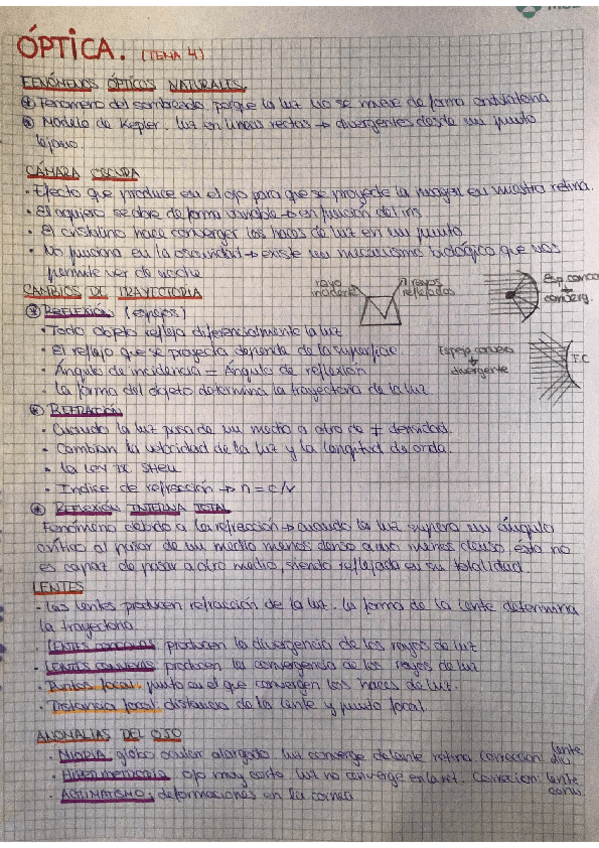 ÓPTICA. (TEMA 4)
FENÓMENOS ÓPTICOS NATURALES.
Fenómeno del sombreado porque la luz no se mueve de forma ondulatoria
Modelo de Kepler. luz en líneas rectas → divergentes desde un punto
lejano.
CÁMARA OSCURA
· Efecto que produce en el ojo para que se proyecte la imagen en nuestra retina.
· El agujero se abre de forma variable → en función del iris
· El cristalino hace converger los haces de luz en un punto
· No funciona en la oscuridad → existe un mecanismo biológico que nos
permite ver de noche
CAMBIOS DE TRAYECTORIA
rayo incidente
rayos reflejados
Esp. concavo
converg.
REFLEXIÓN (espejos)
· Todo objeto refleja diferencialmente la luz
· El reflejo que se proyecta depende de la superficie.
Espejo convexo
divergente
F.C
· Ángulo de incidencia = Ángulo de reflexión
· La forma del objeto determina la trayectoria de la luz.
REFRACCIÓN
· Cuando la luz pasa de un medio a otro de ≠ densidad.
· Cambian la velocidad de la luz y la longitud de onda.
· LA LEY DE SNELL
· Indice de refracción → n = c/v
REFLEXIÓN INTERNA TOTAL
Fenómeno debido a la refracción → cuando la luz supera un ángulo
crítico al pasar de un medio menos denso a uno menos denso, ésta no
es capaz de pasar a otro medio, siendo reflejada en su totalidad.
LENTES
· Las lentes producen refracción de la luz. La forma de la lente determina
la trayectoria.
· LENTES CONCAVAS: producen la divergencia de los rayos de luz
· LENTES CONVEXAS: producen la convergencia de los rayos de luz
· Puntos focal: punto en el que convergen los haces de luz.
· Distancia focal: distancia de la lente y punto focal.
ANOMALIAS DEL OJO
· MIOPIA: globo ocular alargado luz converge delante retina. Corrección: lente
div.
· HIPERMETROPIA: ojo muy corto luz no converge en la ret. Corrección: lente
conv.
· ASTIGMATISMO: deformaciones en la córnea